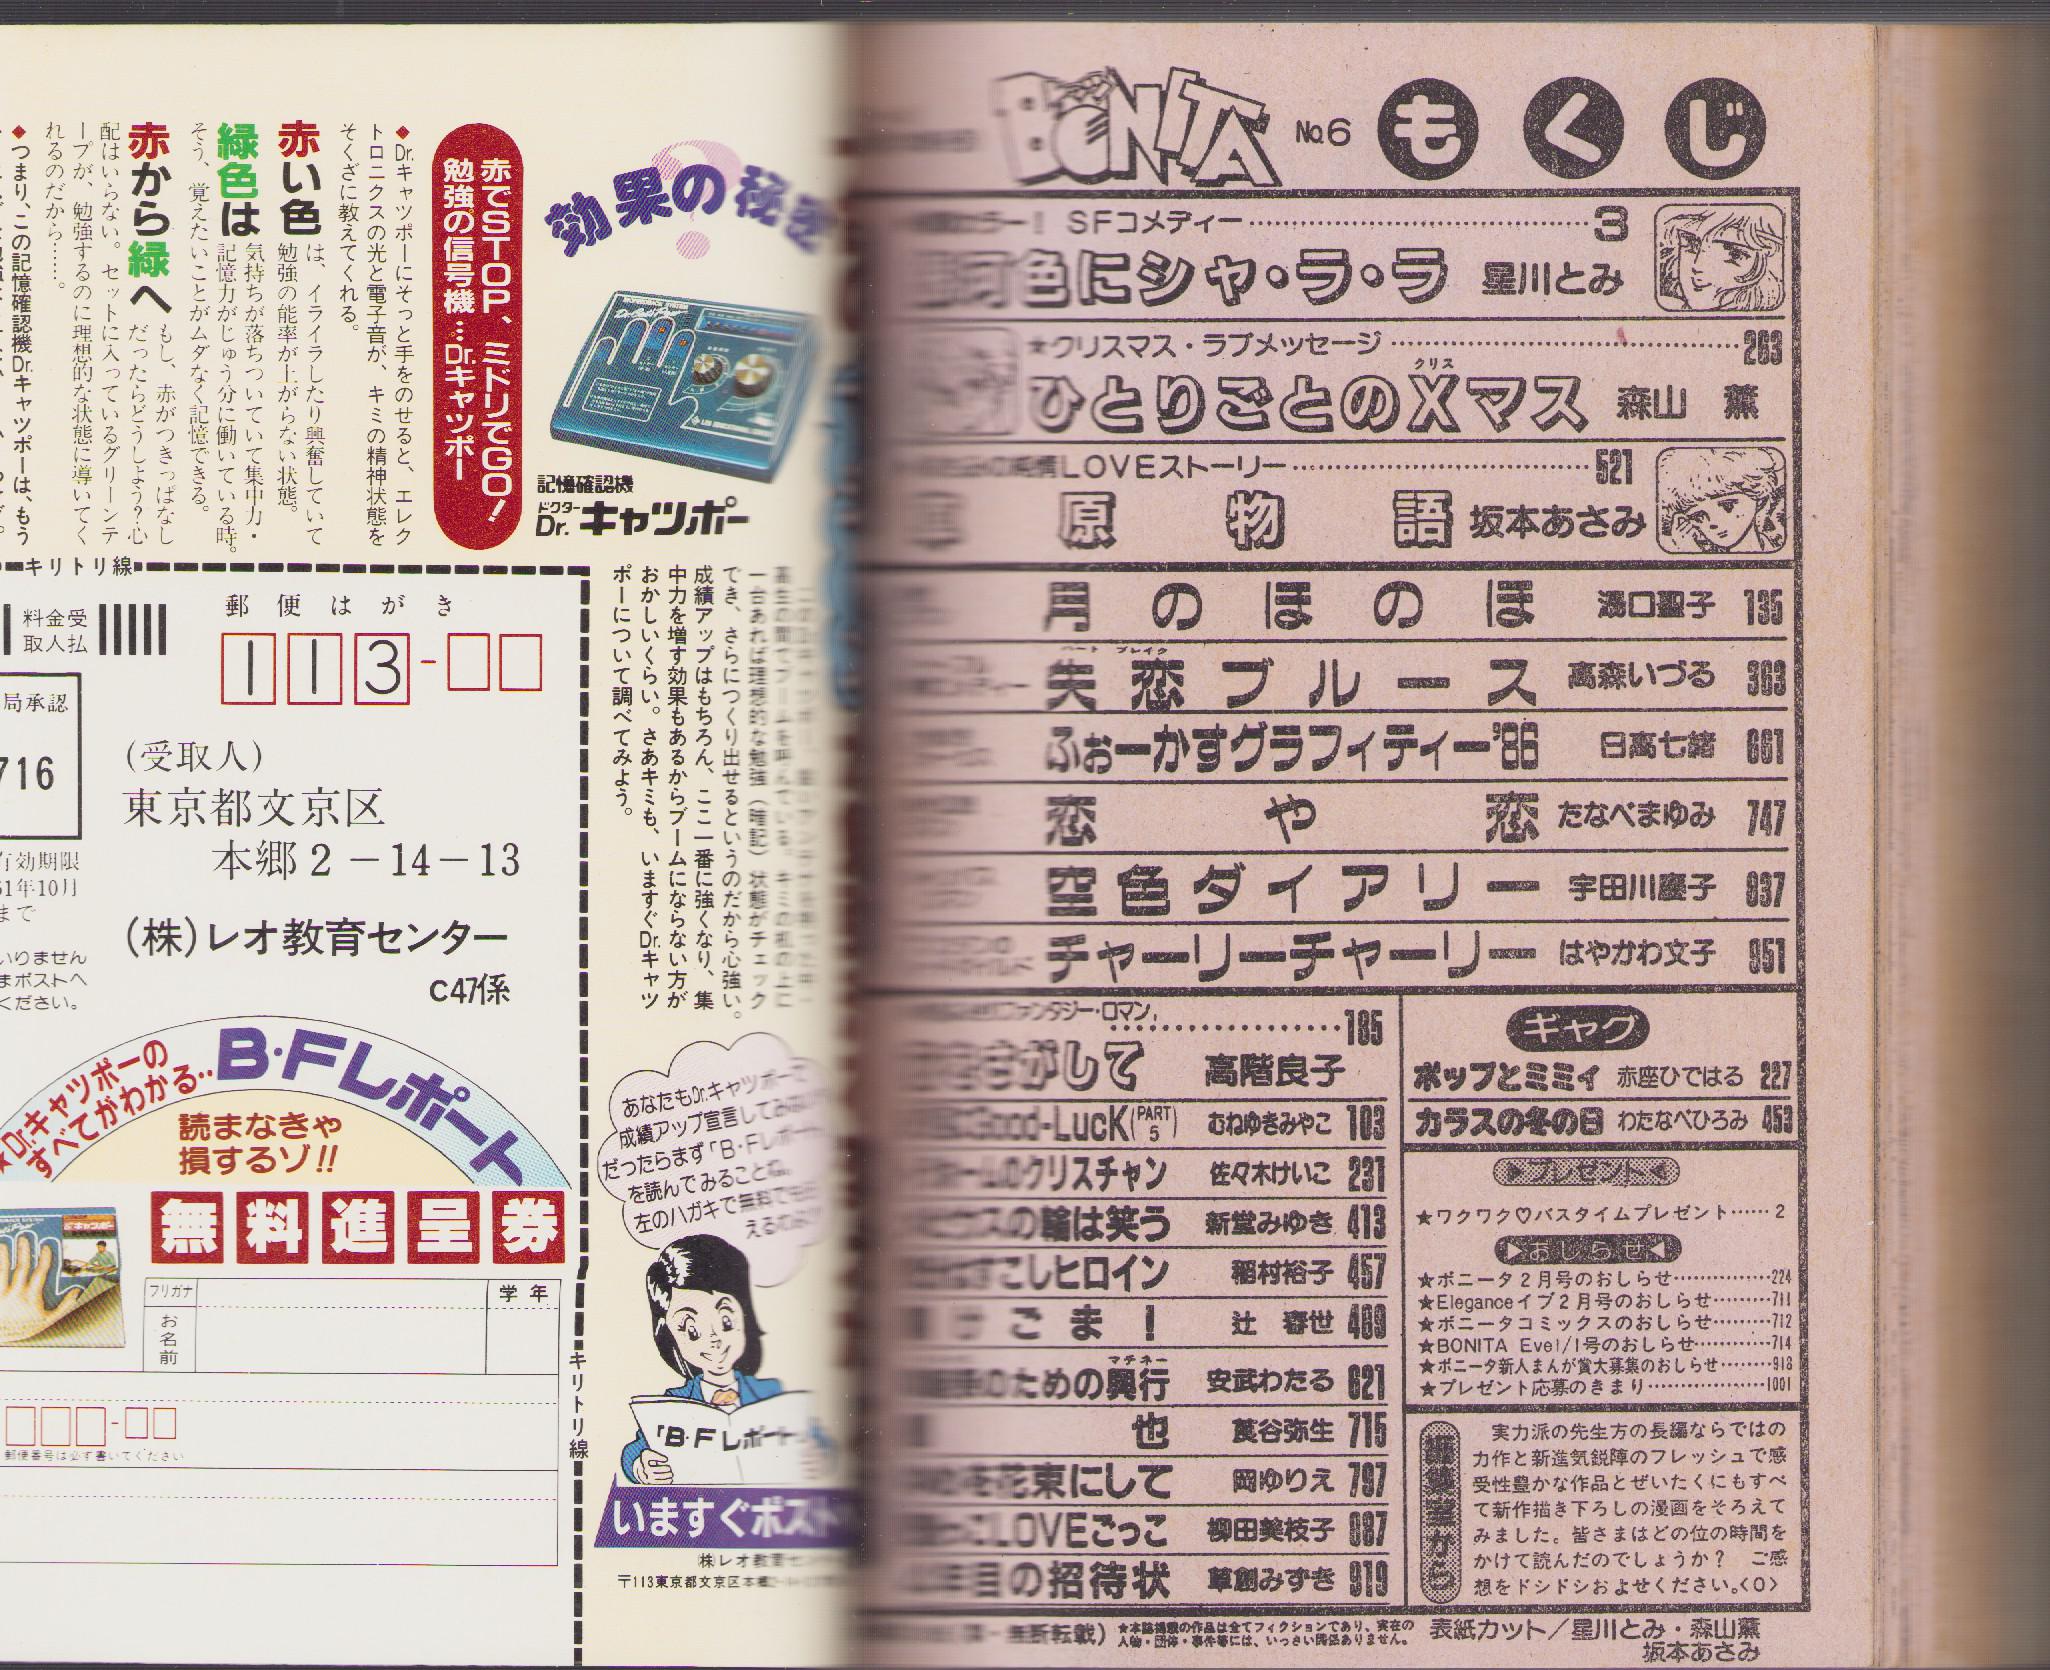 効果の秘密
赤でSTOP、ミドリでGO!
勉強の信号機…Dr.キャッポー
記憶確認機
ドクター
Dr.キャッポー
◆Dr.キャッポーにそっと手をのせると、エレク
トロニクスの光と電子音が、キミの精神状態を
そくざに教えてくれる。
赤い色は、イライラしたり興奮していて
勉強の能率が上がらない状態。
緑色は気持ちが落ちついていて集中力・
記憶力がじゅう分に働いている時。
そう、覚えたいことがムダなく記憶できる。
赤から緑へもし、赤がつきっぱなし
だったらどうしよう?心
配はいらない。セットに入っているグリーンテ
ープが、勉強するのに理想的な状態に導いてく
れるのだから……。
◆つまり、この記憶確認機Dr.キャッポーは、もう
一台あれば理想的な勉強(暗記)状態がチェック
でき、さらにつくり出せるというのだから心強い。
成績アップはもちろん、ここ一番に強くなり、集
中力を増す効果もあるからブームにならない方が
おかしいくらい。さあキミも、いますぐDr.キャッ
ポーについて調べてみよう。
キリトリ線
料金受
取人払
郵便はがき
113-
局承認
716
有効期限
61年10月
まで
いりません
まポストへ
ください。
(受取人)
東京都文京区
本郷2-14-13
(株)レオ教育センター
C47係
★Dr.キャッポーの
すべてがわかる‥
B・Fレポート
読まなきゃ
損するゾ!!
無料進呈券
フリガナ
お名前
学年
郵便番号は必ず書いてください
キリトリ線
あなたもDr.キャッポーで
成績アップ宣言してみない
だったらまず「B・Fレポート
を読んでみることね。
左のハガキで無料で
えるのよ
「B・Fレポート」
いますぐポスト
㈱レオ教育セン
〒113東京都文京区本郷
BONITA No.6 もくじ
SFコメディー 3
色にシャ・ラ・ラ 星川とみ
★クリスマス・ラブメッセージ 263
クリス
ひとりごとのXマス 森山 薫
純情LOVEストーリー 521
原物語 坂本あさみ
月のほのほ 湯口聖子 135
ハート ブレイク
失恋ブルース 高森いづる 363
ふぉーかすグラフィティー'86 日高七緒 661
恋や恋 たなべまゆみ 747
空色ダイアリー 宇田川慶子 837
チャーリーチャーリー はやかわ文子 951
ファンタジー・ロマン 185
さがして 高階良子
Good-Luck(PART5) むねゆきみやこ 103
ームのクリスチャン 佐々木けいこ 231
スの輪は笑う 新堂みゆき 413
すこしヒロイン 稲村裕子 457
けごま! 辻 春世 489
マチネー
のための興行 安武わたる 621
也 菱谷弥生 715
を花束にして 岡ゆりえ 797
LOVEごっこ 柳田美枝子 887
年目の招待状 草創みずき 919
ギャグ
ポップとミミィ 赤座ひではる 227
カラスの冬の日 わたなべひろみ 453
▶プレゼント◀
★ワクワク♡バスタイムプレゼント……2
▷おしらせ◁
★ボニータ2月号のおしらせ……224
★Eleganceイブ2月号のおしらせ……711
★ボニータコミックスのおしらせ……712
★BONITA Eve1/1号のおしらせ……714
★ボニータ新人まんが賞大募集のおしらせ……918
★プレゼント応募のきまり……1001
編集室から
実力派の先生方の長編ならではの
力作と新進気鋭陣のフレッシュで感
受性豊かな作品とぜいたくにもすべ
て新作描き下ろしの漫画をそろえて
みました。皆さまはどの位の時間を
かけて読んだのでしょうか? ご感
想をドシドシおよせください。〈O〉
無断転載)
★本誌掲載の作品は全てフィクションであり、実在の
人物・団体・事件等には、いっさい関係ありません。
表紙カット/星川とみ・森山薫
坂本あさみ